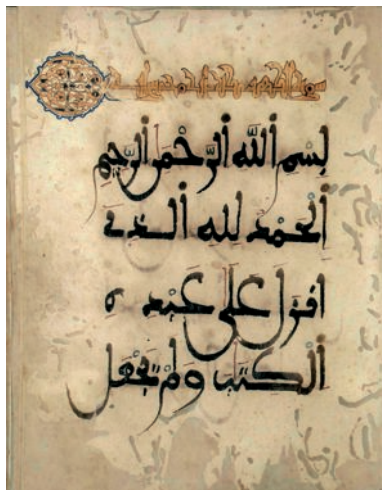 سورة الكهف
بسم الله الرحمن الرحيم
الحمد لله الذي
انزل على عبده
الكتب ولم يجعل